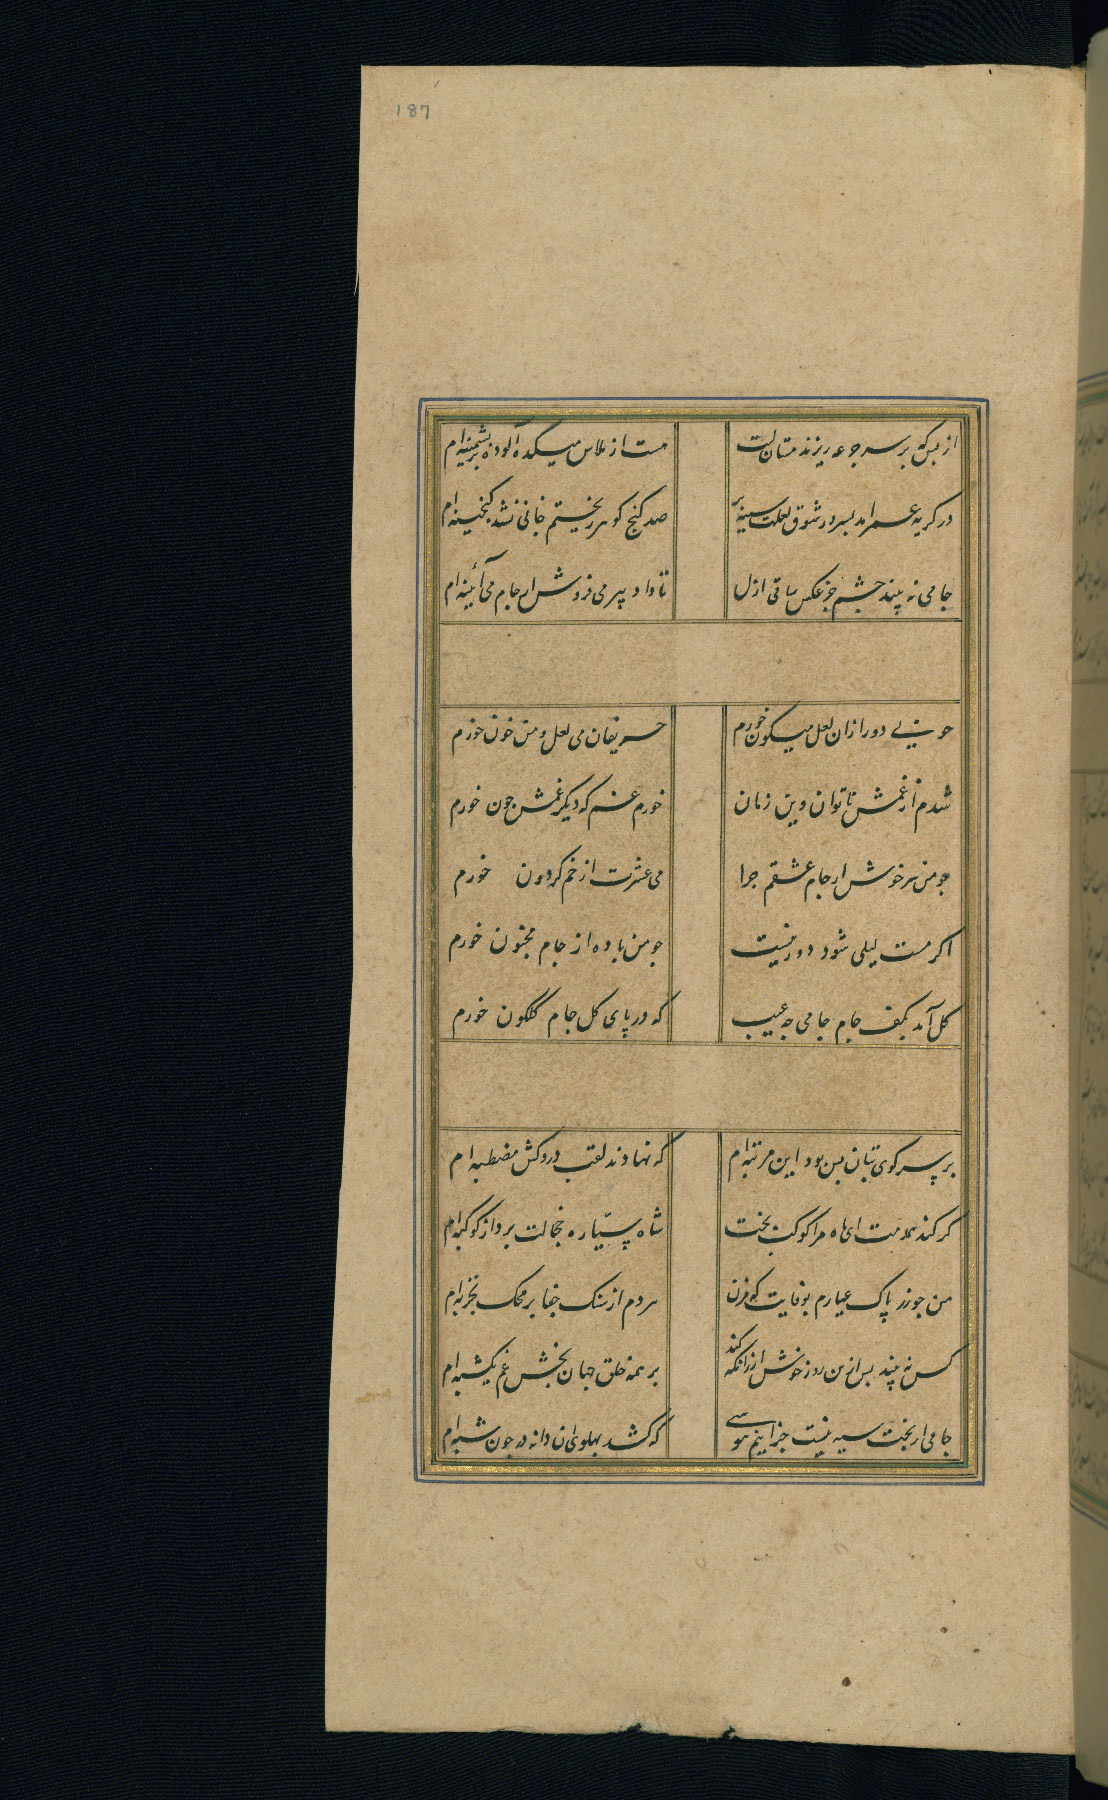 187
از بس که بر سر جرعه ریزند مستان لبت مست از پلاس میکده آلوده تر پشمینه‌ام
در گریه عمر آمد بسر در شوق لعلت سینه پر صد کنج کوهر ریختم خالی نشد کنجینه‌ام
جامی نه بیند چشم جز عکس ساقی ازل تا داد پیر می فروش از جام می آئینه‌ام
دور از ان لعل میکون خورم حریفان می لعل و من خون خورم
شدم از غمش ناتوان وین زمان خورم غم که دیکر غمش چون خورم
چو من سرخوش از جام عشقم چرا می عشرت از خم کردون خورم
اکر مست لیلی شود دور نیست چو من باده از جام مجنون خورم
کل آمد بکف جام جامی چه عیب که در پای کل جام کلکون خورم
بر سر کوی بتان بس بود این مرتبه‌ام که نهادند لقب دردکش مصطبه‌ام
کر کند همدمت ای ماه مرا کوکب بخت شاه سیاره خجالت برد از کوکبه‌ام
من چو زر پاک عیارم بوفایت که مزن هر دم از سنک جفا بر محک تجربه‌ام
کس نه بیند پس ازین روز خوش ار زانکه کند بر همه خلق جهان بخش غم یکشبه‌ام
جامی از بخت سیه نیست جز اینم هوسی که کشد پهلوی ان دانه در چون شبه‌ام